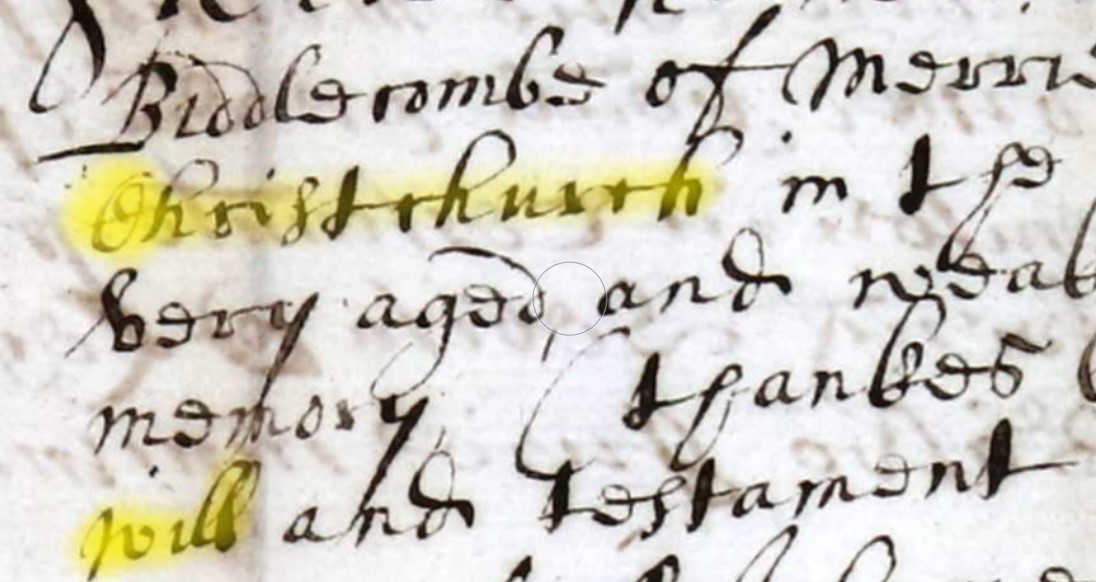 Biddlecombe of Merri
Christchurch in the
very aged and weak
memory (thankes
will and testament